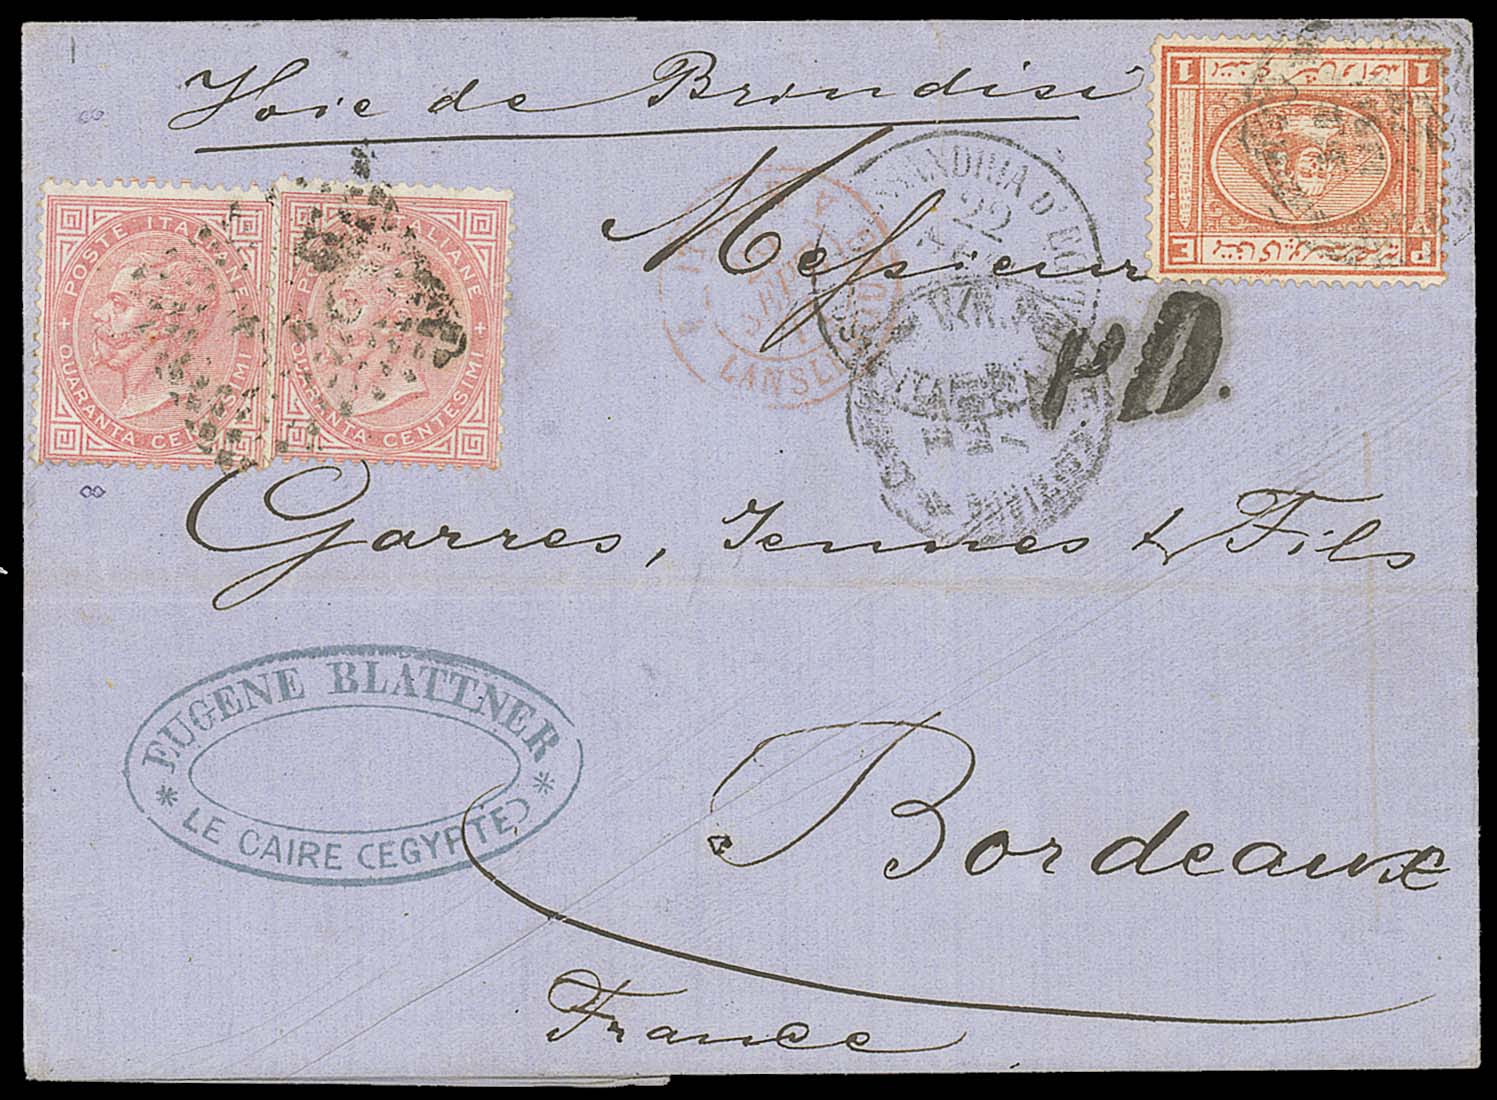 Voie de Brindisi
Messieurs
Garres, Jennes & Fils
Bordeaux
France
P.D.
POSTE ITALIANE
QUARANTA CENTESIMI
ITALIANE
QUARANTA CENTESIMI
1 1
P E
22
LANSLE
EUGENE BLATTNER
* LE CAIRE (EGYPTE) *
8
8